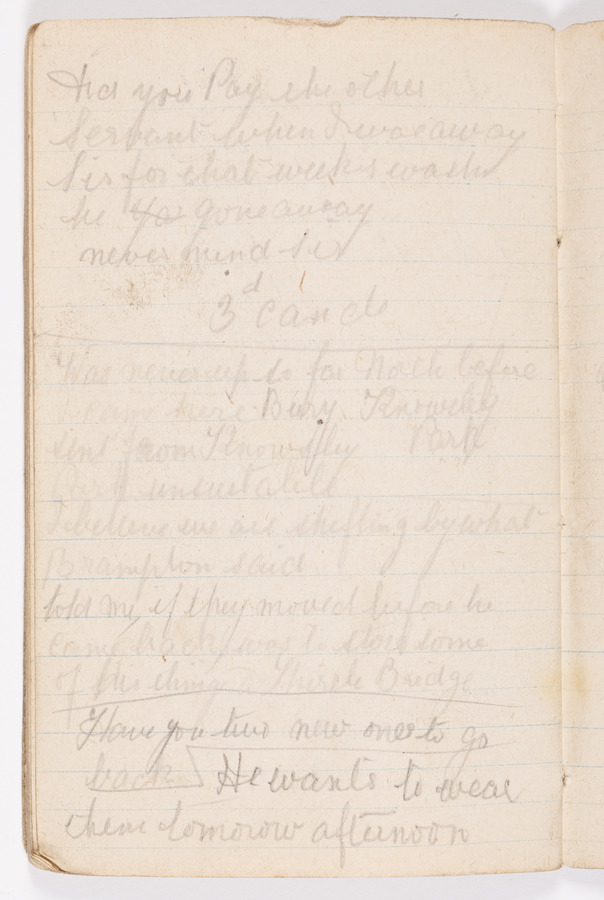 Did you Pay the other
Servant when I was away
Sir for that week's wash
he has gone away
never mind Sir
3d cand
Was never up so far North before
I came here Bury. Knowsley
sent from Knowsley Park
Park unsuitable
I believe we are shifting by what
Brampton said
told me, if they moved before he
came back, was to stow some
of his things Thirsk Bridge
Have you two new ones to go
back He wants to wear
them tomorow afternoon